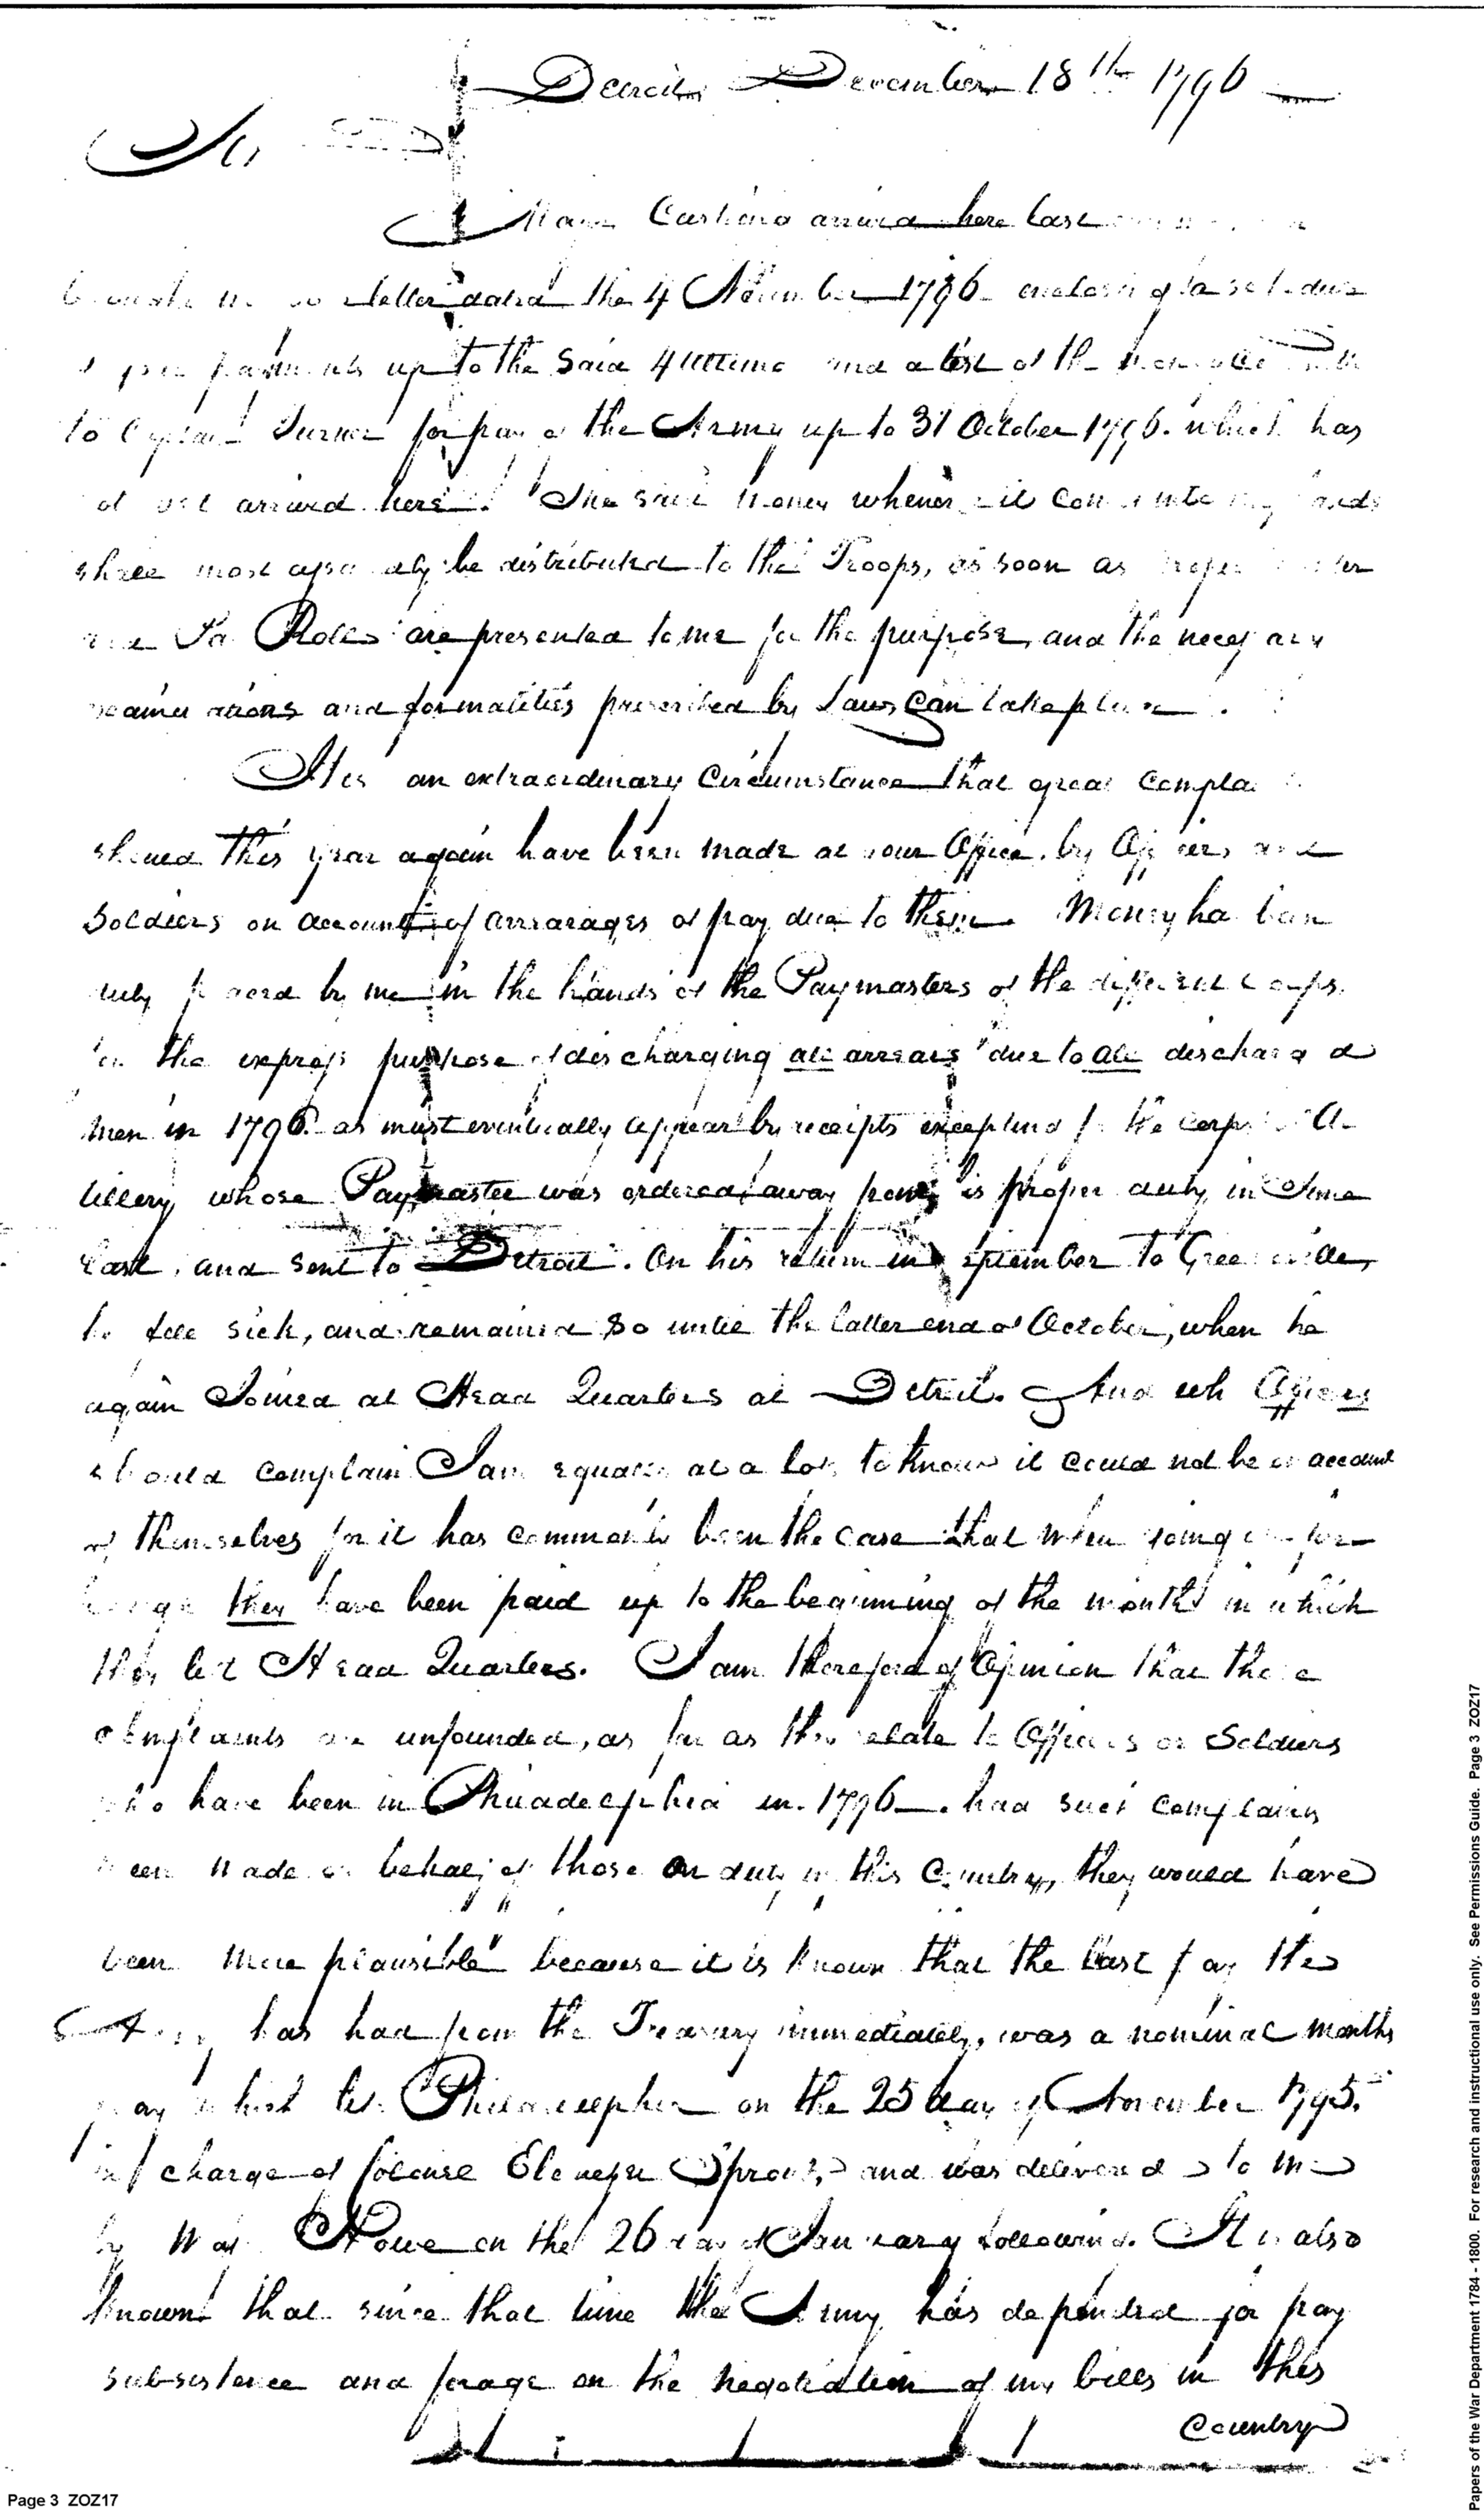 Detroit December 18th 1796
Sir
Major Cushing arrived here last
letter dated the 4 November 1796 enclosing a schedule
payments up to the said 4 ultimo and a list of the
to Captain Turner for pay of the Army up to 31 October 1796. which has
not yet arrived here. The said money whenever it comes into my hands
shall most assuredly be distributed to the Troops, as soon as proper
and Pay Rolls are presented to me for the purpose, and the necessary
examinations and formalities prescribed by Laws can take place.
It is an extraordinary Circumstance that great Complaints
should this year again have been made at your Office, by Officers and
Soldiers on account of arrearages of pay due to them. Money has been
duly placed by me in the hands of the Paymasters of the different Corps,
for the express purpose of discharging all arrears due to all discharged
men in 1796. as must eventually appear by receipts excepting for the corps of Ar-
tillery whose Paymaster was ordered away from his proper duty in June
last, and sent to Detroit. On his return in September to Greenville,
he fell sick, and remained so untill the latter end of October, when he
again Joined at Head Quarters at Detroit. And why Officers
should complain I am equally at a loss to know it could not be on account
of themselves for it has commonly been the case that when going on fur-
lough they have been paid up to the beginning of the month in which
they left Head Quarters. I am therefore of Opinion that these
complaints are unfounded, as far as they relate to Officers or Soldiers
who have been in Philadelphia in 1796. had such complaints
been made on behalf of those on duty in this Country, they would have
been more plausible because it is known that the last pay the
Army has had from the Treasury immediately, was a nominal months
pay which left Philadelphia on the 25 day of November 1795.
in charge of Colonel Ebenezer Sprout, and was delivered to me
by Howe on the 26 day of January following. It is also
known that since that time the Army has depended for pay
subsistence and forage on the negotiation of my bills in this
Country
Page 3 ZOZ17
Papers of the War Department 1784 - 1800. For research and instructional use only. See Permissions Guide. Page 3 ZOZ17